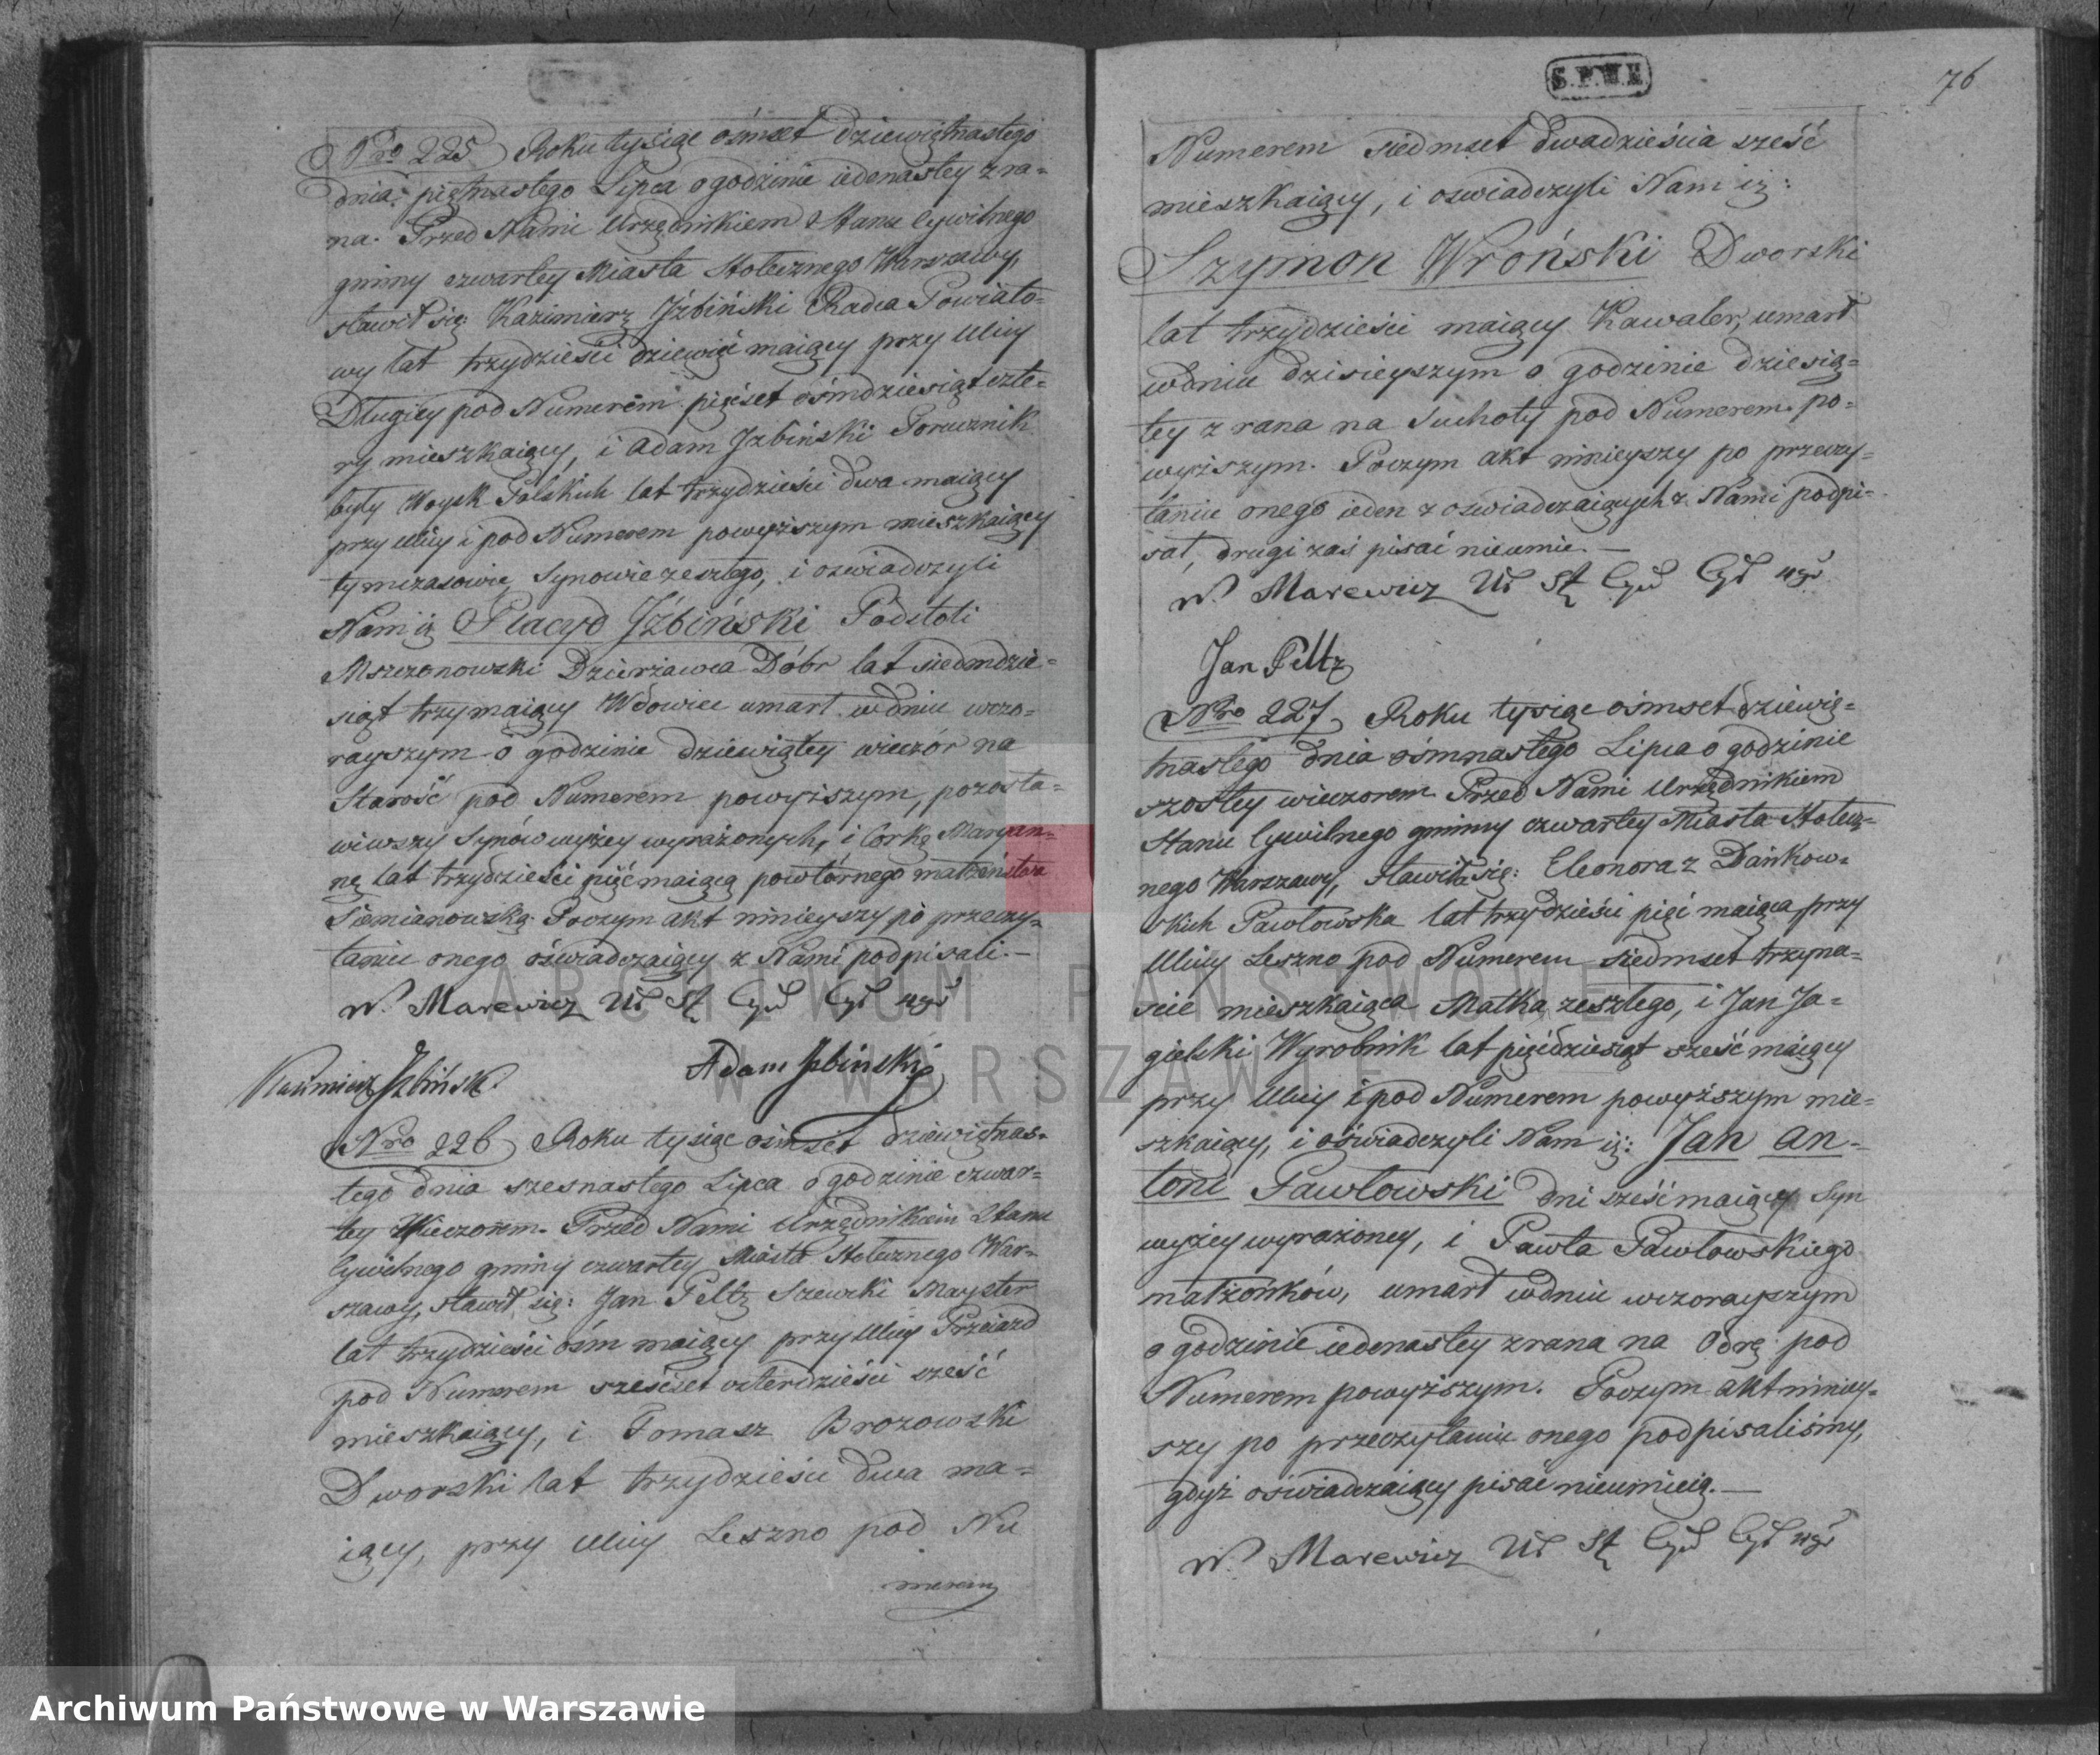 Nro 225 Roku tysiąc ośmset dziewiętnastego
dnia piętnastego Lipca o godzinie iedenastey z ra-
na. Przed Nami Urzędnikiem Stanu Cywilnego
gminy czwartey Miasta Stołecznego Warszawy,
stawił się: Kazimierz Jźbiński Radca Powiato-
wy lat trzydzieści dziewięć maiący przy Ulicy
Długiey pod Numerem pięćset ośmdziesiąt czte-
ry mieszkaiący, i Adam Jzbiński Porucznik
były Woysk Polskich lat trzydzieści dwa maiący
przy Ulicy i pod Numerem powyższym mieszkaiący
tymczasowie, Synowie zeszłego, i oświadczyli
Nam iż Placyd Jźbiński Podstoli
Mszczonowski Dzierżawca Dóbr lat siedmdzie-
siąt trzy maiący Wdowiec umarł w dniu wczo-
rayszym o godzinie dziewiątey wieczór na
Starość pod Numerem powyższym, pozosta-
wiwszy Synów wyżey wyrażonych, i Corkę Maryan-
nę lat trzydzieści pięć maiącą powtórnego małżeństwa
Siemianowską. Poczym akt ninieyszy po przeczy-
taniu onego oświadczaiący z Nami podpisali.—
W. Marewicz Ur St Cyw Cyr wgo
Kazimierz Jzbiński. Adam Jzbiński
Nro 226 Roku tysiąc ośmset dziewiętnas-
tego dnia szesnastego Lipca o godzinie czwar-
tey Wieczorem. Przed Nami Urzędnikiem Stanu
Cywilnego gminy czwartey Miasta Stołecznego War-
szawy, stawił się: Jan Peltz Szewcki Mayster
lat trzydzieści ośm maiący przy Ulicy Przeiazd
pod Numerem sześćset czterdzieści sześć
mieszkaiący, i Tomasz Brozowski
Dworski lat trzydzieści dwa ma-
iący, przy Ulicy Leszno pod Nu
merem
S.P.W.M
76
Numerem siedmset dwadzieścia sześć
mieszkaiący, i oświadczyli Nam iż:
Szymon Wroński Dworski
lat trzydzieści maiący Kawaler, umarł
w dniu dzisieyszym o godzinie dziesią-
tey z rana na Suchoty pod Numerem po-
wyższym. Poczym akt ninieyszy po przeczy-
taniu onego ieden z oświadczaiących z Nami podpi-
sał, drugi zaś pisać nieumie.—
W. Marewicz Ur St Cyw Cyr wgo
Jan Peltz
Nro 227 Roku tysiąc ośmset dziewię-
tnastego dnia ośmnastego Lipca o godzinie
szóstey wieczorem Przed Nami Urzędnikiem
Stanu Cywilnego gminy czwartey Miasta Stołecz-
nego Warszawy, stawiła się: Eleonora z Dańkow-
skich Pawłowska lat trzydzieści pięć maiąca przy
Ulicy Leszno pod Numerem siedmset trzyna-
ście mieszkaiąca Matka zeszłego, i Jan Ja-
gielski Wyrobnik lat pięćdziesiąt sześć maiący
przy Ulicy i pod Numerem powyższym mie-
szkaiący, i oświadczyli Nam iż: Jan An-
toni Pawłowski dni sześć maiący Syn
wyżey wyrażoney, i Pawła Pawłowskiego
małżonków, umarł w dniu wczorayszym
o godzinie iedenastey z rana na Odrę pod
Numerem powyższym. Poczym akt niniey-
szy po przeczytaniu onego podpisaliśmy,
gdyż oświadczaiący pisać nieumieią.—
W. Marewicz Ur St Cyw Cyr wgo
ARCHIWUM PAŃSTWOWE
W WARSZAWIE
Archiwum Państwowe w Warszawie